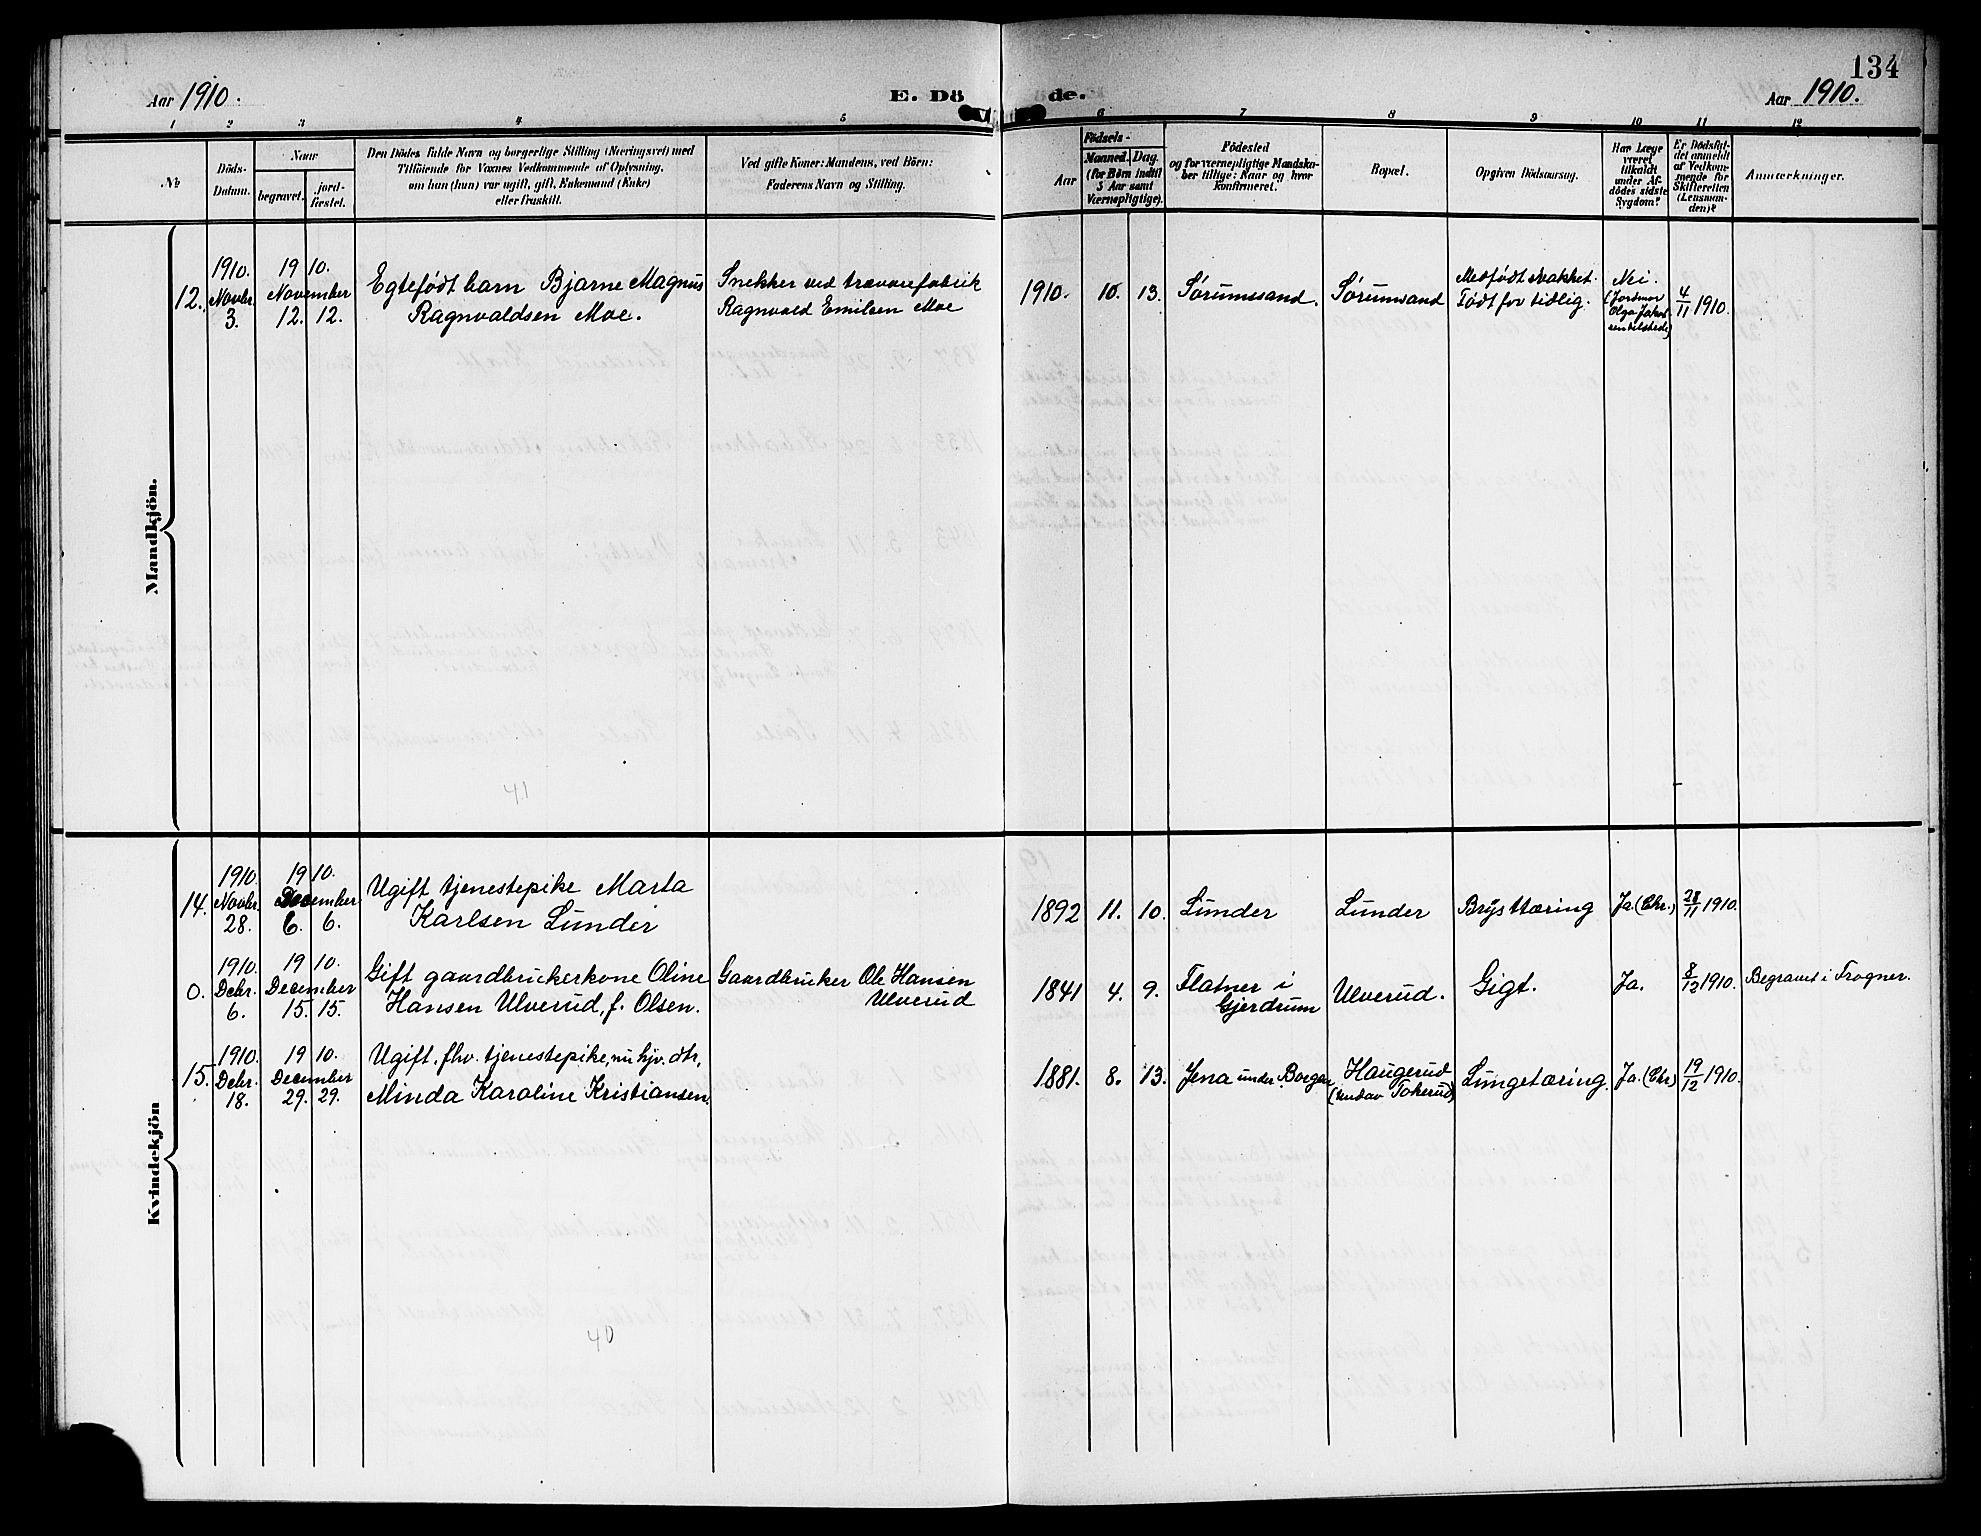 134
Aar 1910.
E. Dödе.
Aar 1910.
1 2 3 4 5 6 7 8 9 10 11 12
№
Döds-
Datum.
Naar
begravet.
jord-
fæstet.
Den Dödes fulde Navn og borgerlige Stilling (Næringsvei) med
Tilföiende for Voxnes Vedkommende af Oplysning,
om han (hun) var ugift, gift, Enkemand (Enke)
eller fraskilt.
Ved gifte Koner: Mandens, ved Börn:
Faderens Navn og Stilling.
Födsels-
Aar
Maaned. Dag.
(for Börn indtil
5 Aar samt
Værnepligtige).
Födested
og for værnepligtige Mandska-
ber tillige: Naar og hvor
konfirmeret.
Bopæl.
Opgiven Dödsaarsag.
Har Læge
været
tilkaldt
under Af-
dödes sidste
Sygdom?
Er Dödsfal-
det anmeldt
af Vedkom-
mende for
Skifteretten
(Lensman-
den)?
Anmærkninger.
Mandkjön.
12.
1910.
Novbr.
3.
1910.
November
12. 12.
Egtefödt barn Bjarne Magnus
Ragnvaldsen Moe.
Snekker ved trævarefabrik
Ragnvald Emilsen Moe
1910. 10. 13.
Sørumsand.
Sørumsand
Medfødt svakhet.
Født for tidlig.
Nei.
(Jordmor
Olga Jakob
sen tilstede)
4/11 1910.
41
Kvindekjön
14.
1910.
Novbr.
28.
1910.
December
6. 6.
Ugift tjenestepike Marta
Karlsen Lunder
1892 11. 10.
Lunder
Lunder
Brysttæring
Ja (Chr.)
28/11 1910.
0.
1910.
Debr.
6.
1910.
December
15. 15.
Gift gaardbrukerkone Oline
Hansen Ulverud, f. Olsen.
Gaardbruker Ole Hansen
Ulverud
1841 4. 9.
Flatner i
Gjerdrum
Ulverud.
Gigt.
Ja.
8/12 1910.
Begravet i Frogner.
15.
1910.
Debr.
18.
1910.
December
29. 29.
Ugift. fhv. tjenestepike, nu hjv. dtr,
Minda Karoline Kristiansen.
1881. 8. 13.
Jena under Borgen
Haugerud
(undav Tokerud)
Lungetæring.
Ja. (Chr)
19/12 1910.
40